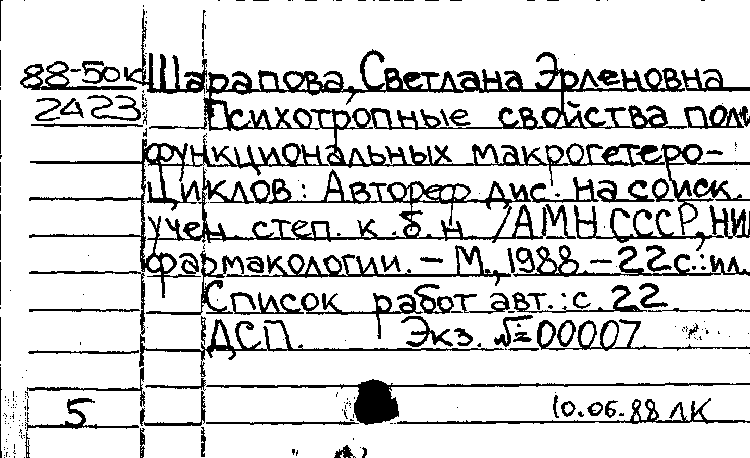 88-50к Шарапова, Светлана Эрленовна
2423 Психотропные свойства поли
функциональных макрогетеро-
циклов: Автореф дис. на соиск.
учен степ. к.б.н. /АМН СССР, НИИ
фармакологии. – М., 1988. – 22с.: ил.
Список работ авт.: с. 22
ДСП. Экз. №=00007
5 10.06.88 ЛК